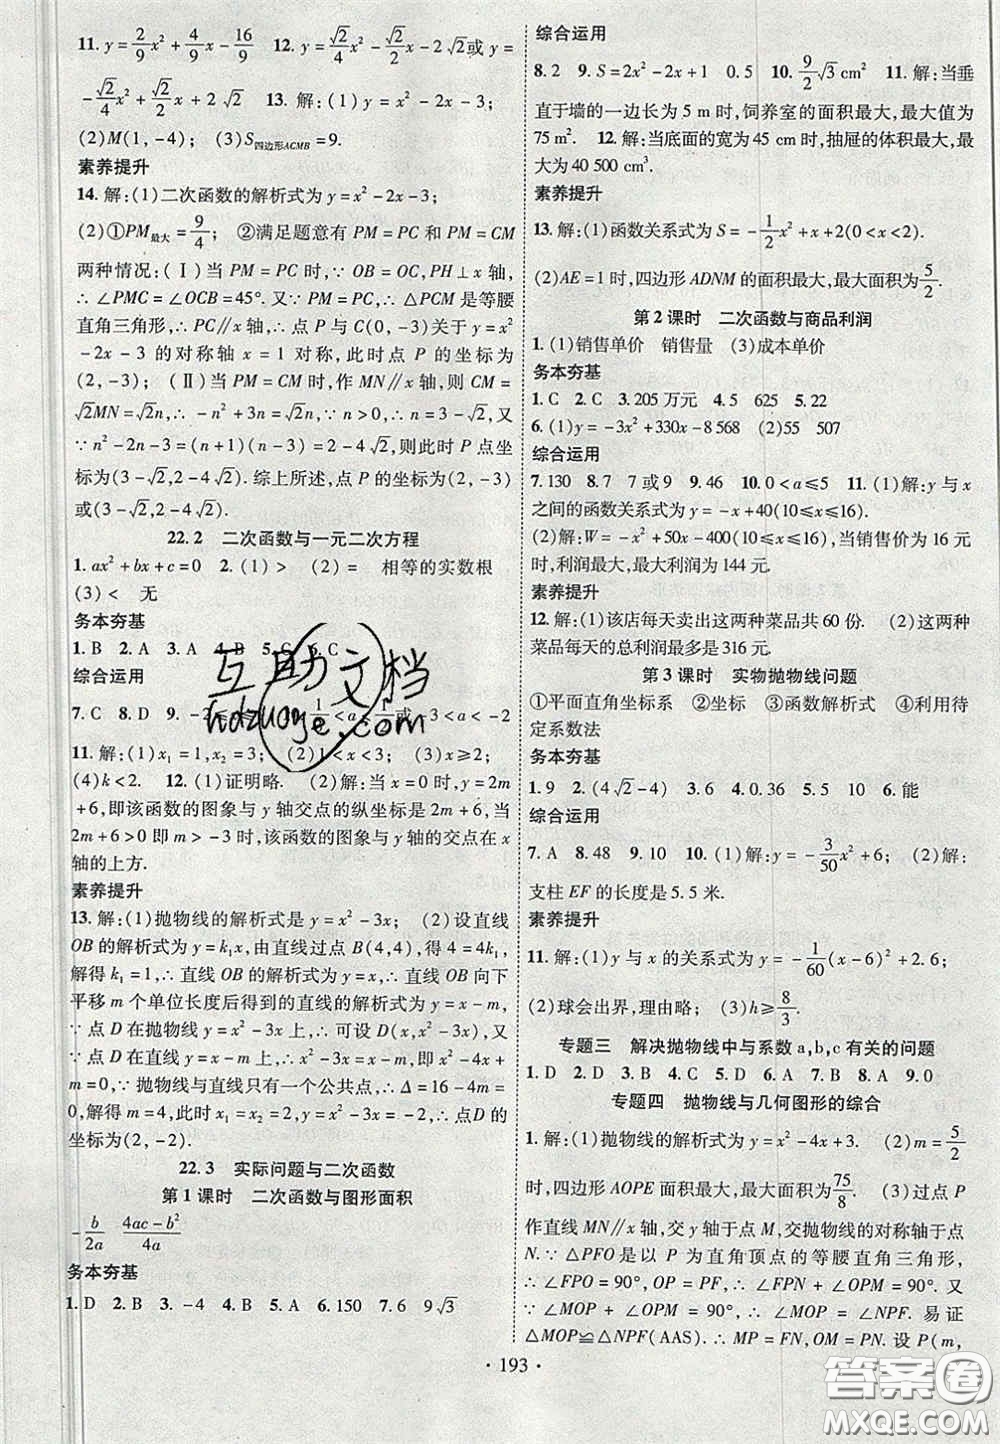 11. y=2/9x²+4/9x-16/9　12. y=√2/4x²-√2/2x-2√2或y=
-√2/4x²+√2/2x+2√2　13. 解:(1)y=x²-2x-3;
(2)M(1,-4);　(3)S四边形ACMB=9.
素养提升
14. 解:(1)二次函数的解析式为y=x²-2x-3;
(2)①PM最大=9/4;　②满足题意有PM=PC和PM=CM
两种情况:(Ⅰ)当PM=PC时,∵OB=OC,PH⊥x轴,
∴∠PMC=∠OCB=45°.又∵PM=PC,∴△PCM是等腰
直角三角形,∴PC∥x轴,∴点P与C(0,-3)关于y=x²
-2x-3的对称轴x=1对称,此时点P的坐标为
(2,-3);　(Ⅱ)当PM=CM时,作MN∥x轴,则CM=
√2MN=√2n,∴-n²+3n=√2n,∵n>0,∴n=3-√2,又
∵n²-2n-3=(n+1)(n-3)=2-4√2,则此时P点坐
标为(3-√2,2-4√2).综上所述,点P的坐标为(2,-3)
或(3-√2,2-4√2).
22.2　二次函数与一元二次方程
1. ax²+bx+c=0　2. (1)>　(2)=　相等的实数根
(3)<　无
务本夯基
1. B　2. A　3. A　4. B　5. C　6. C
综合运用
7. C　8. D　9.
-3<a<-2
11. 解:(1)x₁=1,x₂=3;　(2)1<x<3;　(3)x≥2;
(4)k<2.　12. (1)证明略.　(2)解:当x=0时,y=2m
+6,即该函数的图象与y轴交点的纵坐标是2m+6,当
2m+6>0即m>-3时,该函数的图象与y轴的交点在x
轴的上方.
素养提升
13. 解:(1)抛物线的解析式是y=x²-3x;　(2)设直线
OB的解析式为y=k₁x,由直线过点B(4,4),得4=4k₁,
解得k₁=1,∴直线OB的解析式为y=x,∴直线OB向下
平移m个单位长度后得到的直线的解析式为y=x-m,
∵点D在抛物线y=x²-3x上,∴可设D(x,x²-3x),又
∵点D在直线y=x-m上,∴x²-3x=x-m,即x²-4x+m
=0,∵抛物线与直线只有一个公共点,∴Δ=16-4m=
0,解得m=4,此时x₁=x₂=2,y=x²-3x=-2,∴点D的
坐标为(2,-2).
22.3　实际问题与二次函数
第1课时　二次函数与图形面积
-b/2a　4ac-b²/4a
务本夯基
1. D　2. B　3. -4　4. B　5. A　6. 150　7. 6　9√3
综合运用
8. 2　9. S=2x²-2x+1　0.5　10. 9/2√3 cm²　11. 解:当垂
直于墙的一边长为5 m时,饲养室的面积最大,最大值为
75 m².　12. 解:当底面的宽为45 cm时,抽屉的体积最大,最
大为40 500 cm³.
素养提升
13. 解:(1)函数关系式为S=-1/2x²+x+2(0<x<2).
(2)AE=1时,四边形ADNM的面积最大,最大面积为5/2.
第2课时　二次函数与商品利润
1. (1)销售单价　销售量　(3)成本单价
务本夯基
1. C　2. C　3. 205万元　4. 5　625　5. 22
6. (1)y=-3x²+330x-8 568　(2)55　507
综合运用
7. 130　8. 7　7或9　9. 46　10. 0<a≤5　11. (1)解:y与x
之间的函数关系式为y=-x+40(10≤x≤16).
(2)解:W=-x²+50x-400(10≤x≤16),当销售价为16元
时,利润最大,最大利润为144元.
素养提升
12. 解:(1)该店每天卖出这两种菜品共60份.　(2)这两种
菜品每天的总利润最多是316元.
第3课时　实物抛物线问题
①平面直角坐标系　②坐标　③函数解析式　④利用待
定系数法
务本夯基
1. 9　2. (4√2-4)　3. 6　4. 0.36　5. 5　10　6. 能
综合运用
7. A　8. 48　9. 10　10. (1)解:y=-3/50x²+6;　(2)解:
支柱EF的长度是5.5米.
素养提升
11. 解:(1)y与x的关系式为y=-1/60(x-6)²+2.6;
(2)球会出界,理由略;　(3)h≥8/3.
专题三　解决抛物线中与系数a,b,c有关的问题
1. D　2. D　3. D　4. D　5. D　6. A　7. D　8. A　9. 0
专题四　抛物线与几何图形的综合
1. 解:(1)抛物线的解析式为y=x²-4x+3.　(2)m=5/2
时,四边形AOPE面积最大,最大值为75/8.　(3)过点P
作直线MN∥x轴,交y轴于点M,交抛物线的对称轴于点
N.∵△PFO是以P为直角顶点的等腰直角三角形,
∴∠FPO=90°,OP=PF,∴∠FPN+∠OPM=90°.又
∵∠MOP+∠OPM=90°,∴∠MOP=∠NPF.易证
△MOP≌△NPF(AAS).∴MP=FN,OM=PN.设P(m,
· 193 ·
互助文档
hdzuoye.com
答案圈
MXQE.COM